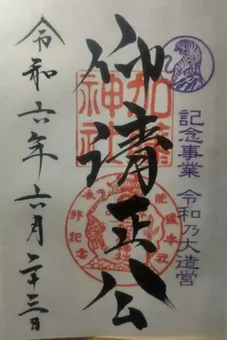 記念事業 令和乃大造営
仰清正公
加藤神社
令和六年六月二十三日